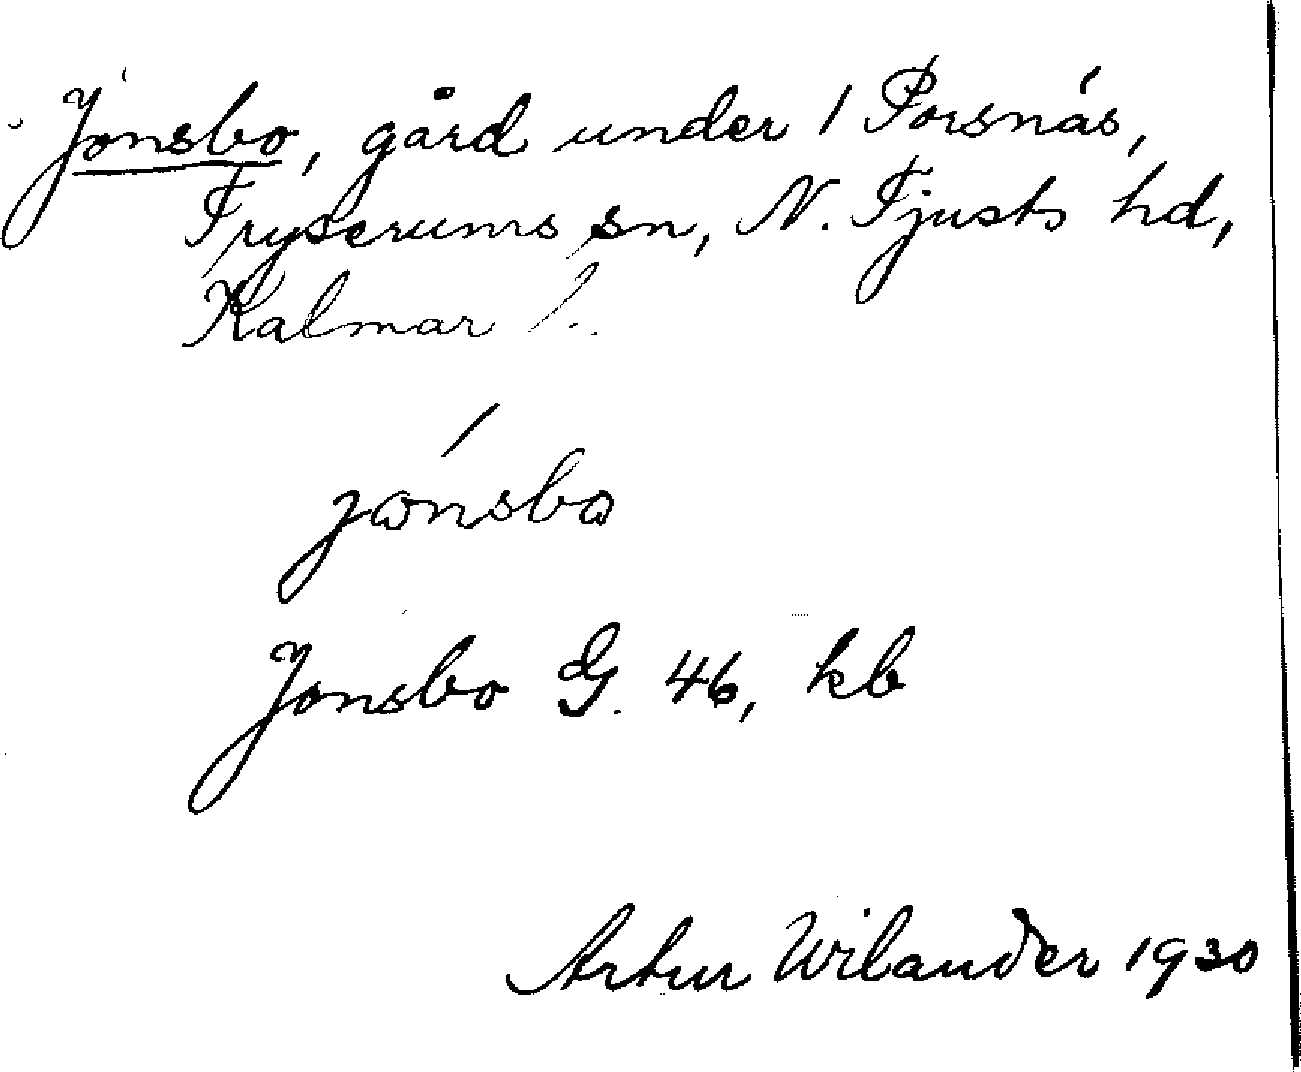 Jonsbo, gård under 1 Porsnäs,
Tryserums sn, N. Tjusts hd,
Kalmar l.
jónsbo
Jonsbo G. 46, kb
Artur Wilander 1930